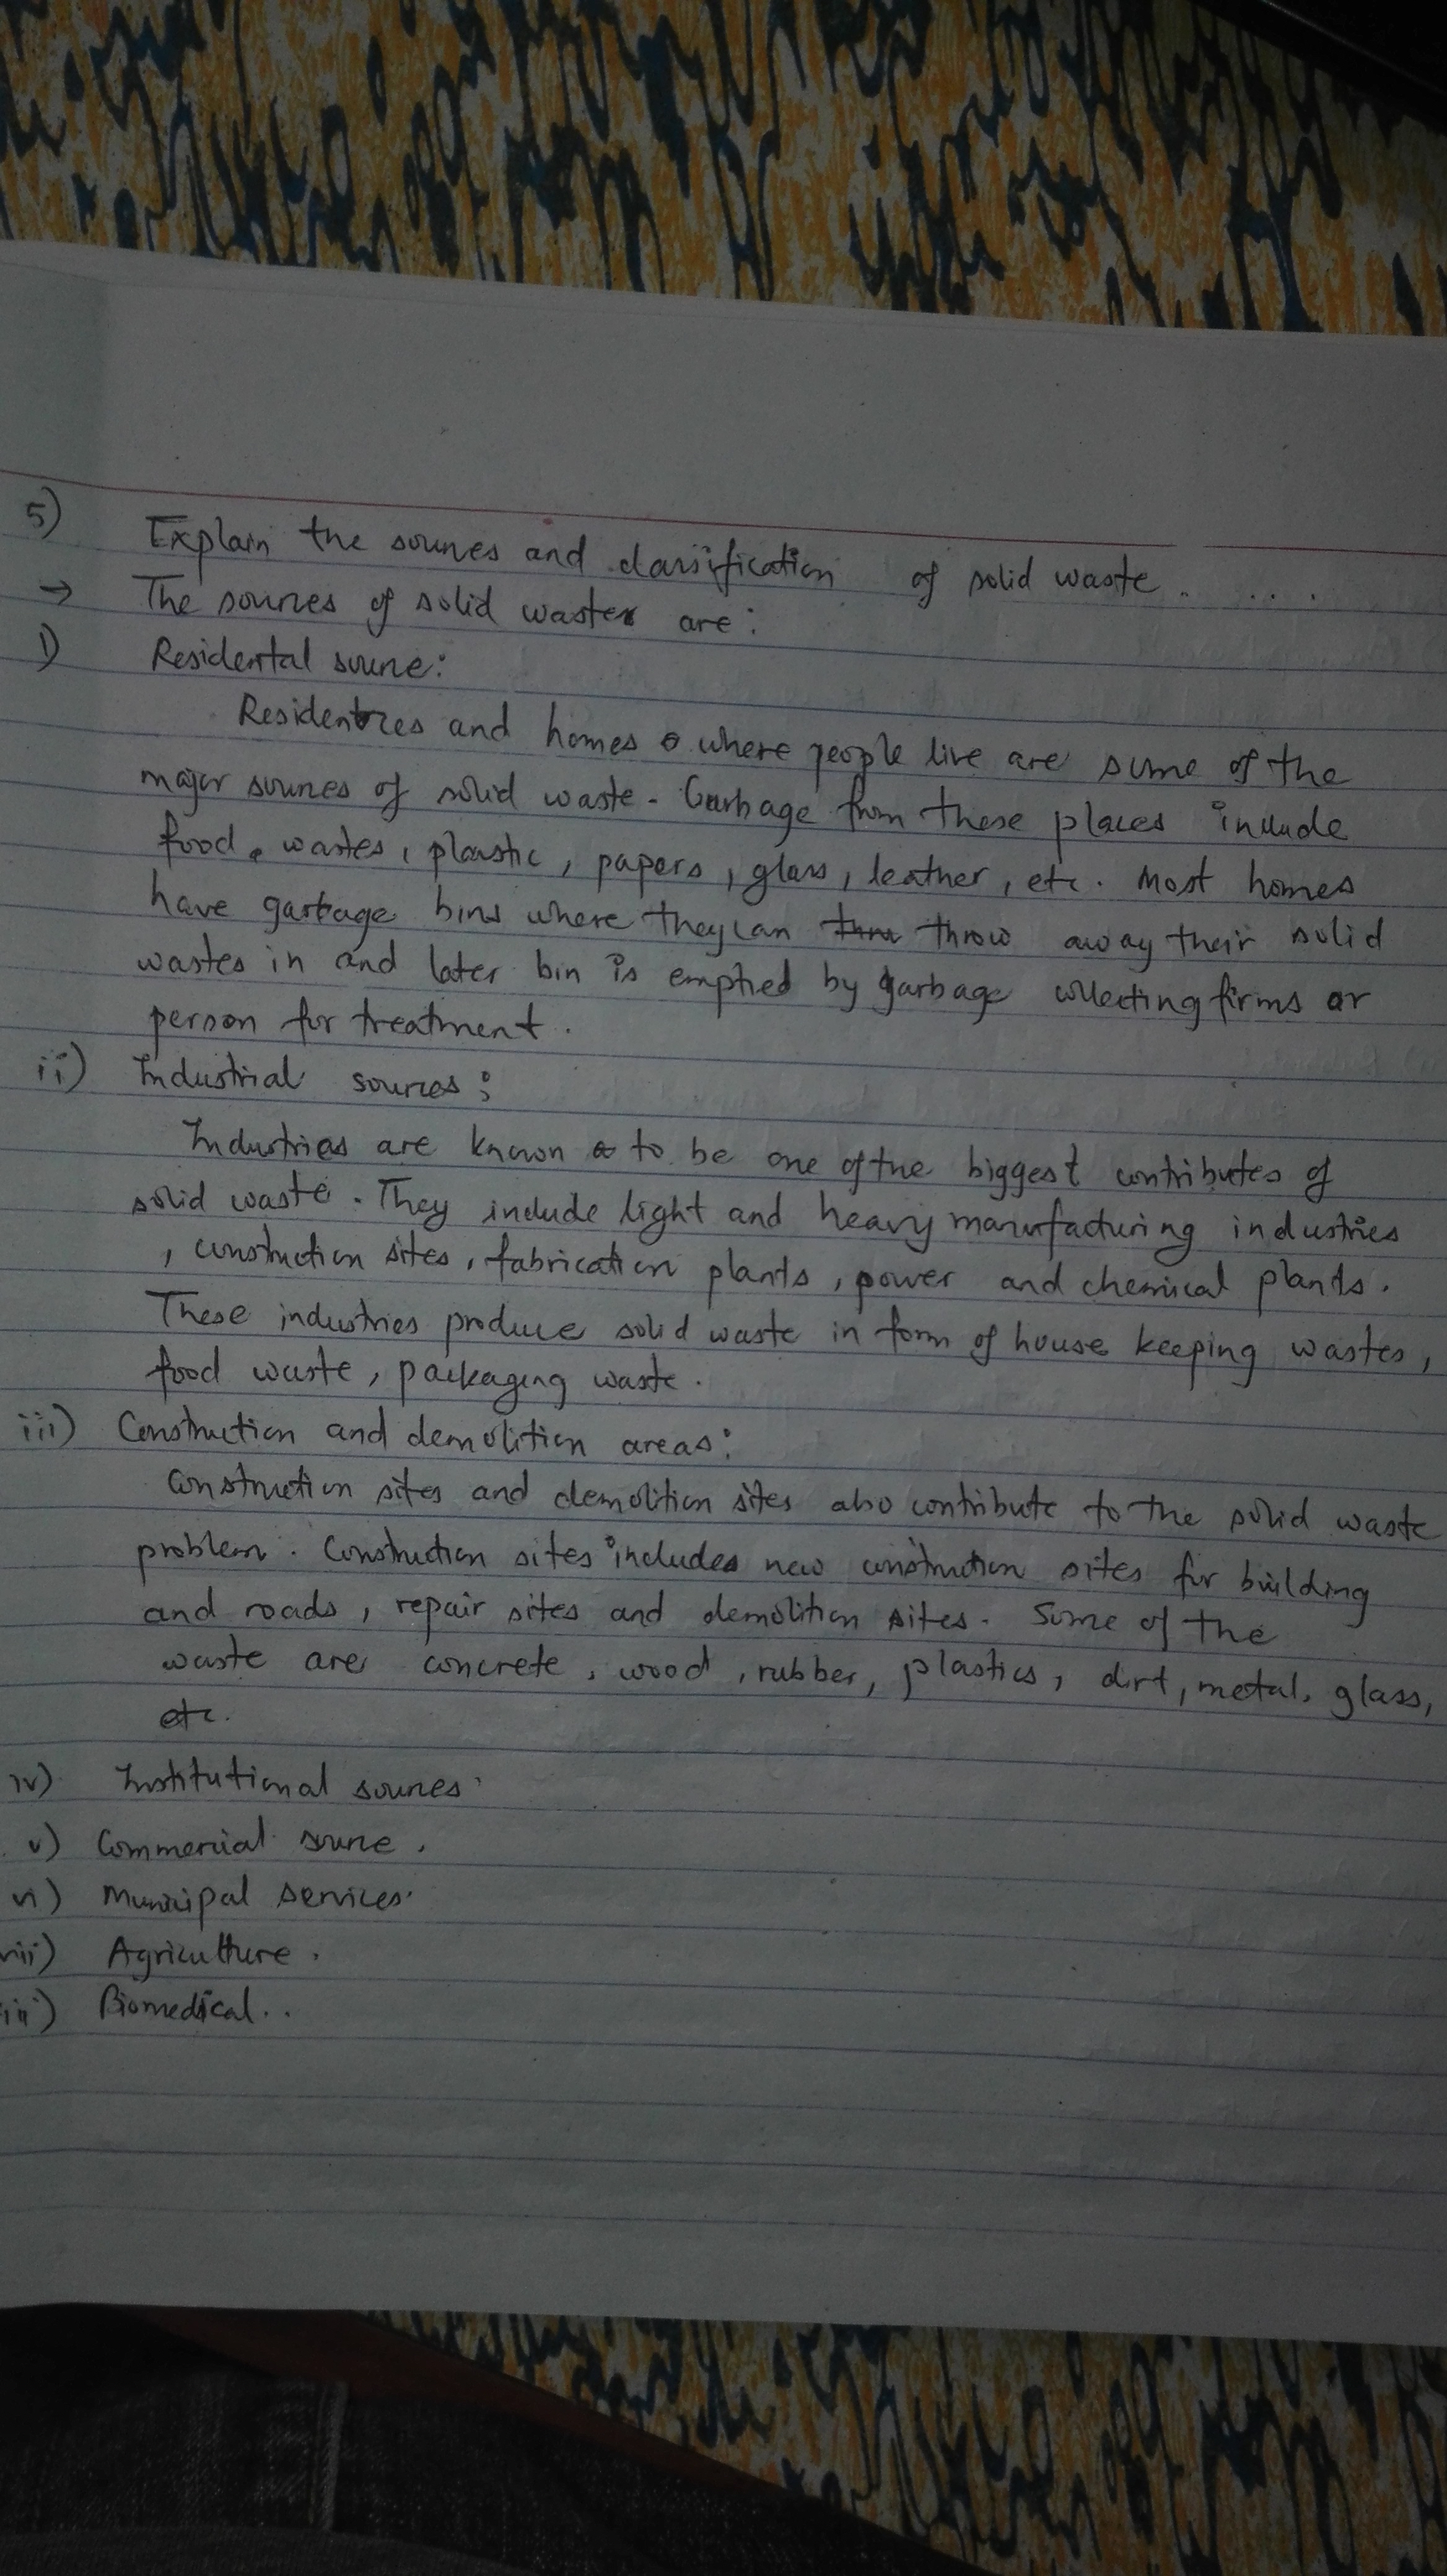 5) Explain the sources and classification of solid waste. ....
→ The sources of solid waste are:
i) Residental source:
Residentces and homes where people live are some of the
major sources of solid waste. Garbage from these places include
food wastes, plastic, papers, glass, leather, etc. Most homes
have garbage bins where they can throw away their solid
wastes in and later bin is emptied by garbage collecting firms or
person for treatment.
ii) Industrial sources:
Industries are known to be one of the biggest contributes of
solid waste. They include light and heavy manufacturing industries
, construction sites, fabrication plants, power and chemical plants.
These industries produce solid waste in form of house keeping wastes,
food waste, packaging waste.
iii) Construction and demolition areas:
Construction sites and demolition sites also contribute to the solid waste
problem. Construction sites includes new construction sites for building
and roads, repair sites and demolition sites. Some of the
waste are concrete, wood, rubber, plastics, dirt, metal, glass,
etc.
iv) Institutional sources.
v) Commercial source.
vi) Municipal services.
vii) Agriculture.
iii) Biomedical..